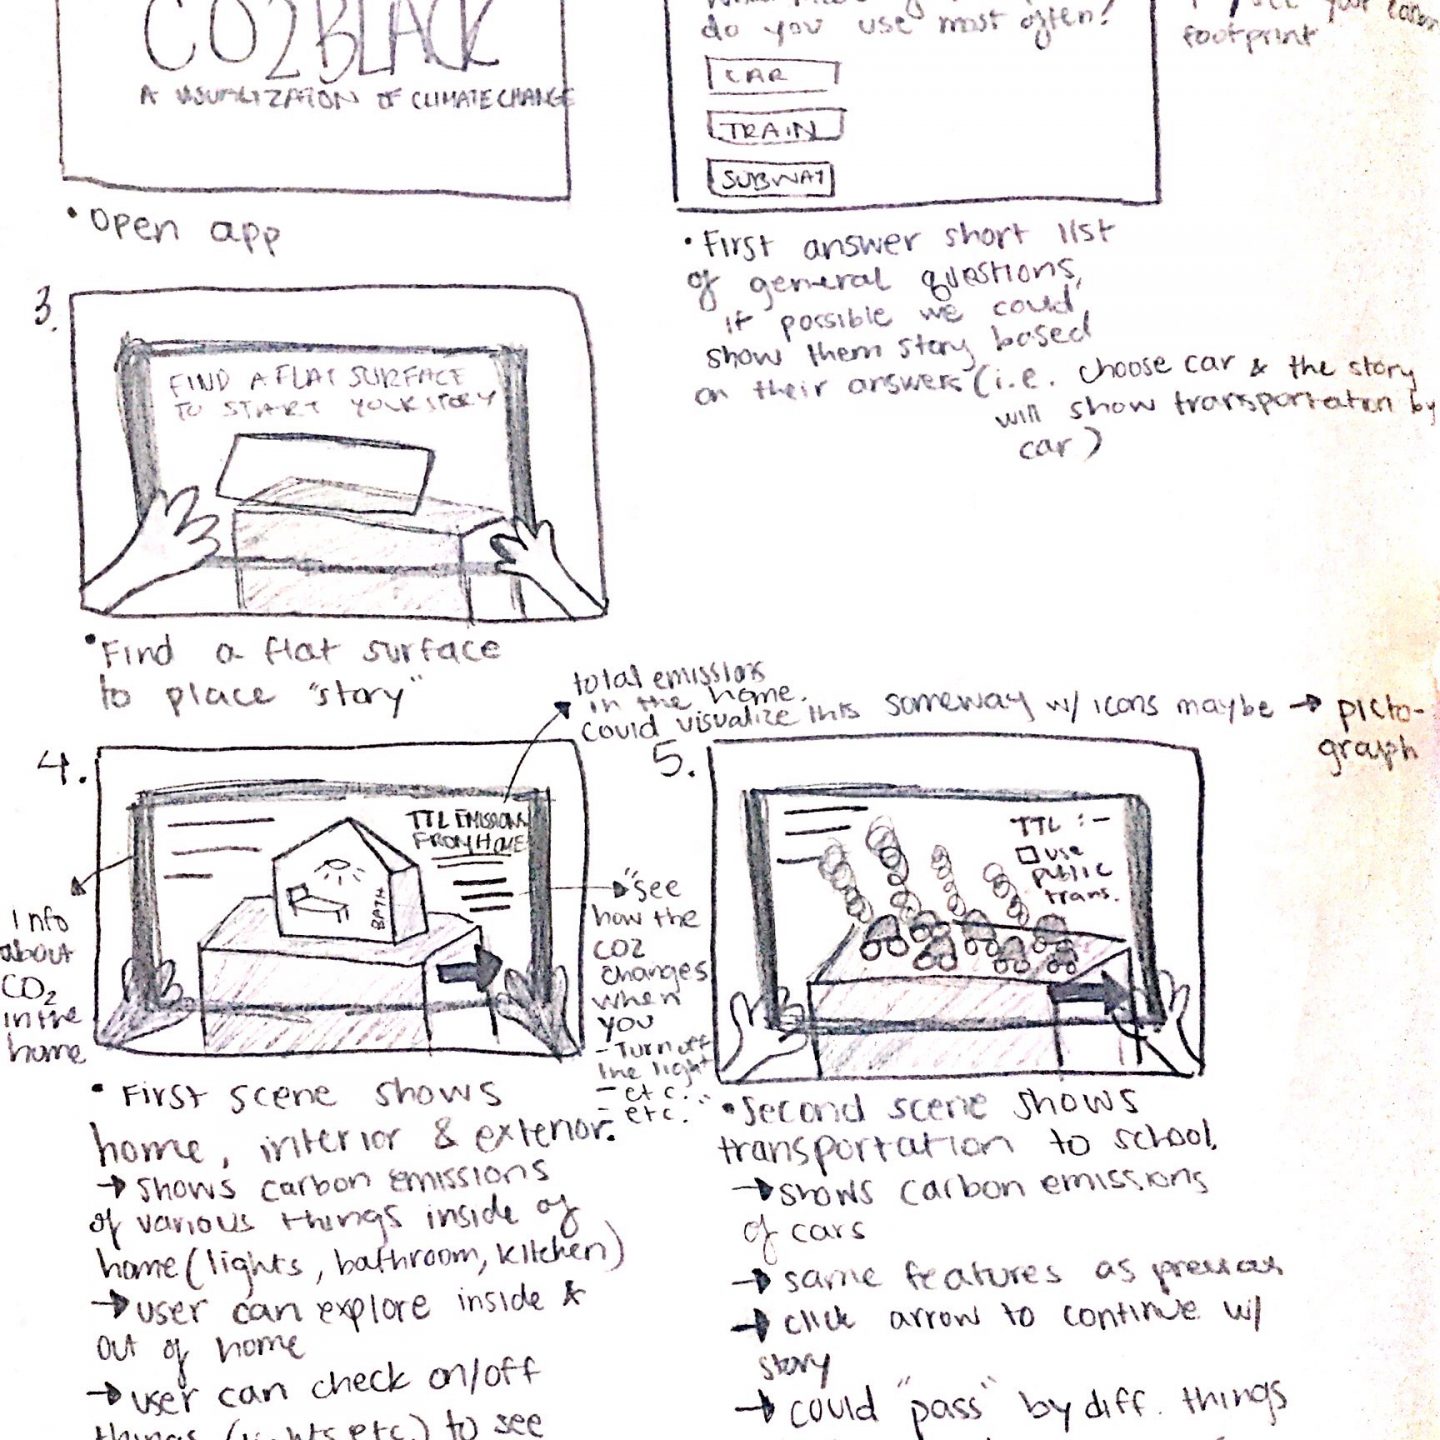 CO2BLACK
A VISUALIZATION OF CLIMATE CHANGE
• Open app
do you use most often?
CAR
TRAIN
SUBWAY
your carbon
footprint
• First answer short list
of general questions,
if possible we could
show them story based
on their answers (i.e. choose car & the story
will show transportation by
car)
3.
FIND A FLAT SURFACE
TO START YOUR STORY
• Find a flat surface
to place "story"
total emissions
in the home.
could visualize this someway w/ icons maybe → picto-
graph
4.
TTL EMISSIONS
FROM HOME
BATH
Info
about
CO2
in the
home
"see
how the
CO2
changes
when
you
- Turn off
the light
- etc.
- etc."
• First scene shows
home, interior & exterior.
→ shows carbon emissions
of various things inside of
home (lights, bathroom, kitchen)
→ user can explore inside &
out of home
→ user can check on/off
things (lights etc.) to see
5.
TTL : -
use
public
trans.
• Second scene shows
transportation to school.
→ shows carbon emissions
of cars
→ same features as previous
→ click arrow to continue w/
story
→ could "pass" by diff. things